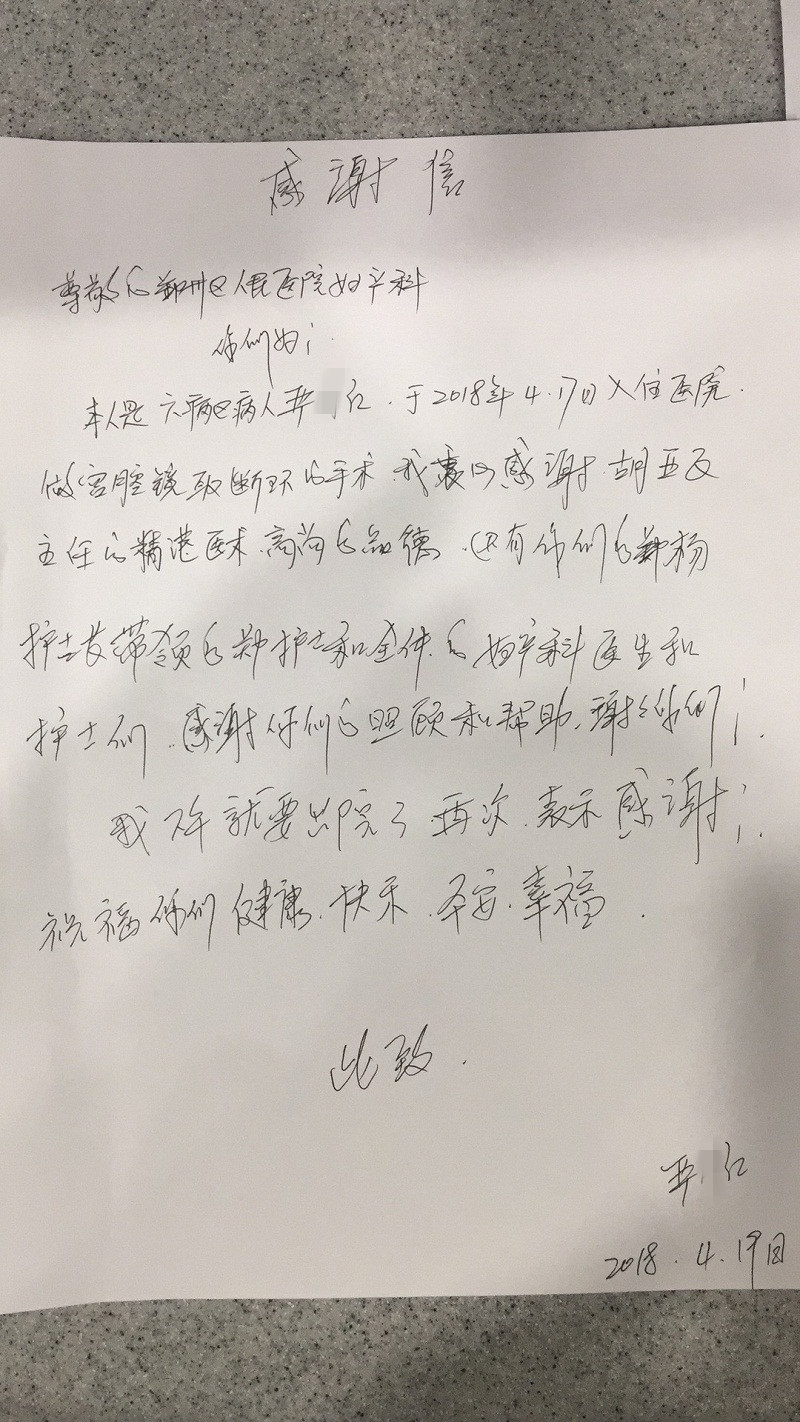 感谢信
尊敬的鄞州区人民医院妇产科
你们好！
本人是六病区病人 红.于2018年4.17日入住医院.
做宫腔镜取断环的手术.我衷心感谢.胡亚
主任的精湛医术.高尚的品德.还有你们的
护士长带领的 护士和全体的妇产科医生和
护士们.感谢你们的照顾和帮助.谢谢你们！.
我下午就要出院了.再次.表示感谢！.
祝福你们健康.快乐.平安.幸福.
此致.
红
2018.4.19日